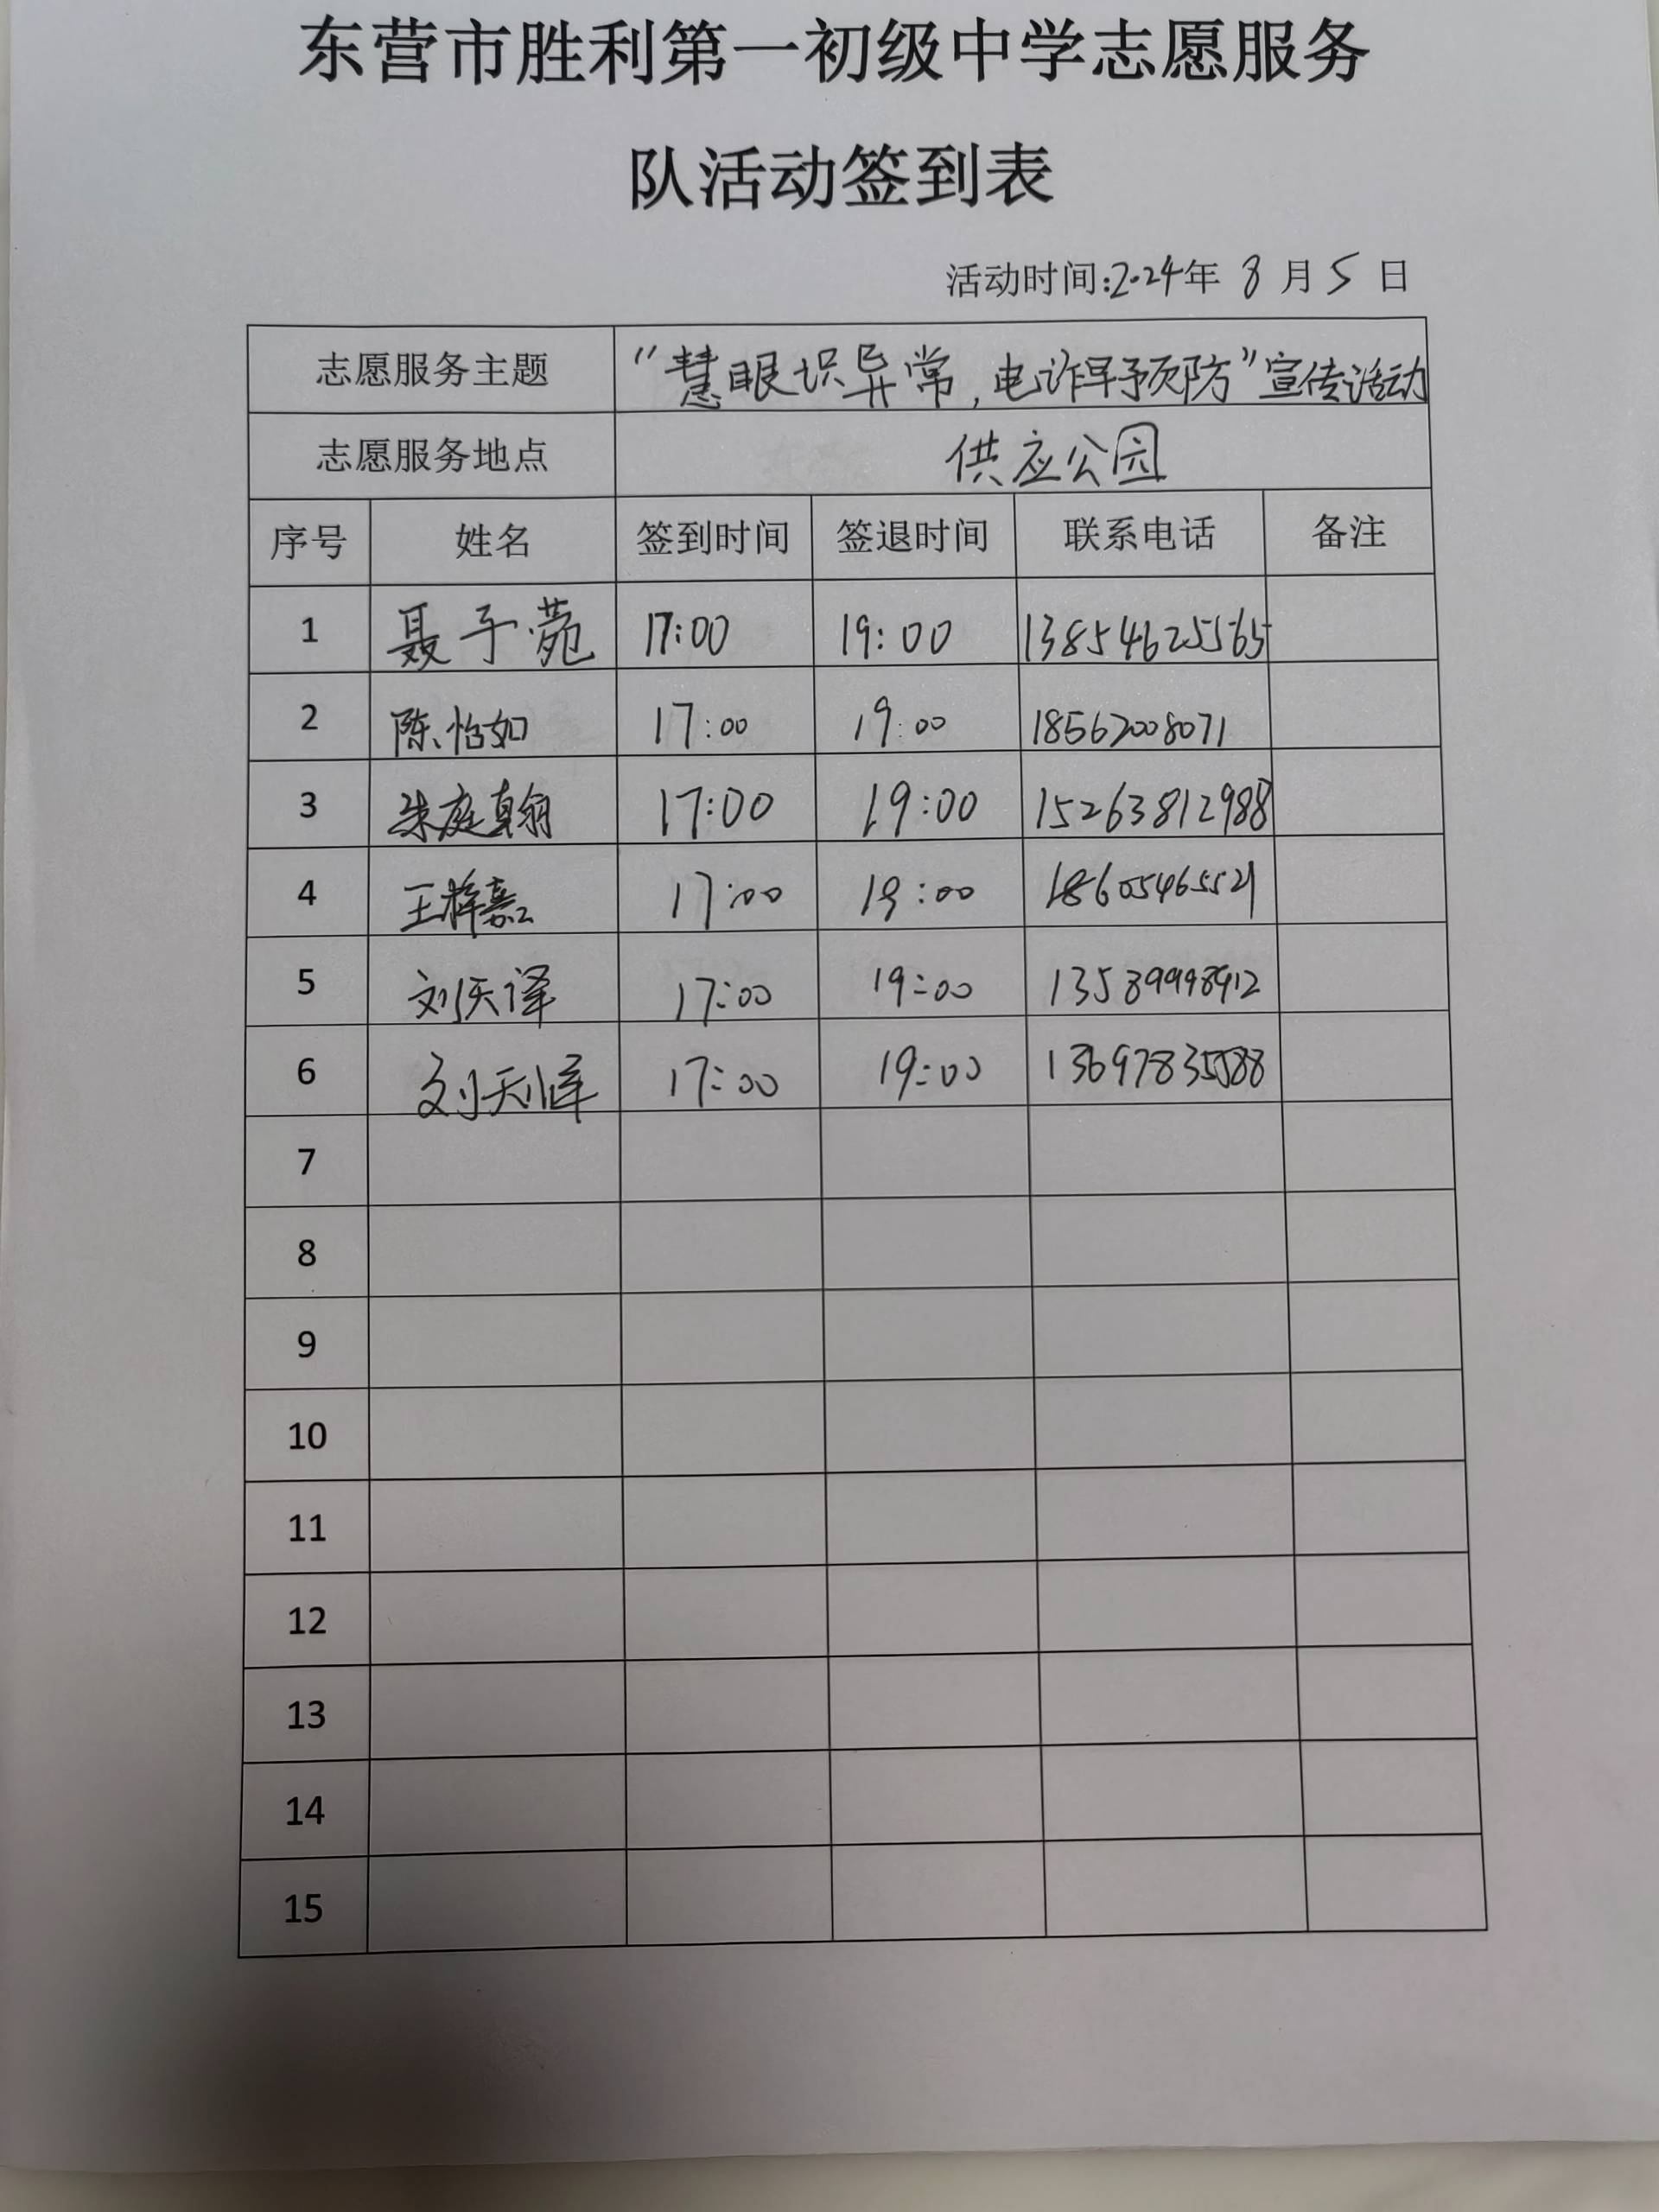 东营市胜利第一初级中学志愿服务
队活动签到表
活动时间:2024年 8 月 5 日
志愿服务主题 “慧眼识异常,电诈早预防”宣传活动
志愿服务地点 供应公园
序号 姓名 签到时间 签退时间 联系电话 备注
1 聂子菀 17:00 19:00 13854625565
2 陈怡如 17:00 19:00 18562008071
3 朱庭翰 17:00 19:00 15263812988
4 王梓嘉 17:00 19:00 18605465521
5 刘天译 17:00 19:00
6 刘天恽 17:00 19:00
7
8
9
10
11
12
13
14
15